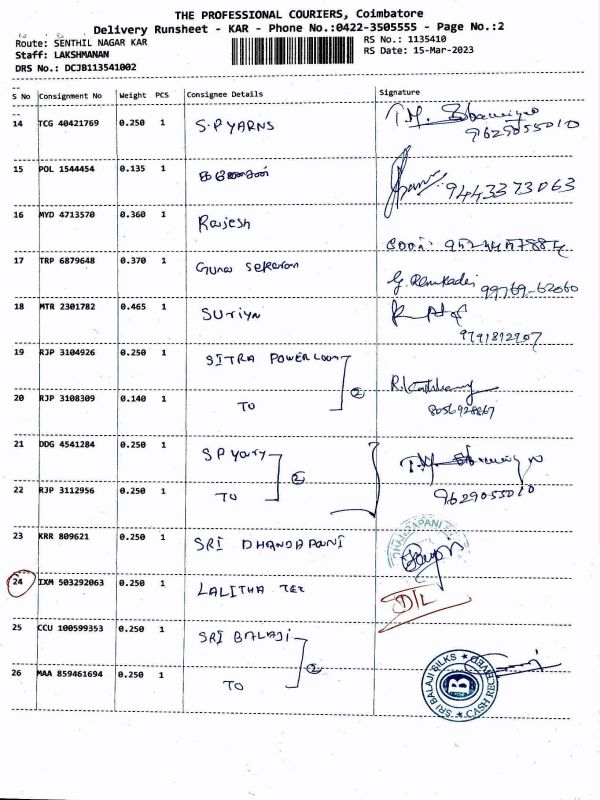 THE PROFESSIONAL COURIERS, Coimbatore
Delivery Runsheet - KAR - Phone No.:0422-3505555 - Page No.:2
Route: SENTHIL NAGAR KAR
RS No.: 1135410
Staff: LAKSHMANAN
RS Date: 15-Mar-2023
DRS No.: DCJB113541002
S No Consignment No Weight PCS Consignee Details Signature
14 TCG 40421769 0.250 1 S.P YARNS
9629055010
15 POL 1544454 0.135 1 கணேசன்
9443373063
16 MYD 4713570 0.360 1 Rajesh
17 TRP 6879648 0.370 1 Guna sekaran
99769-62060
18 MTR 2301782 0.465 1 SURIYA
9791892907
19 RJP 3104926 0.250 1 SITRA POWERLOOM
②
20 RJP 3108309 0.140 1 TO
8056928867
21 DDG 4541284 0.250 1 S P Yarn
②
22 RJP 3112956 0.250 1 TO
9629055010
23 KRR 809621 0.250 1 SRI DHANDAPANI
DHANDAPANI
24 IXM 503292063 0.250 1 LALITHA TEX
D/L
25 CCU 100599353 0.250 1 SRI BALAJI
②
26 MAA 859461694 0.250 1 TO
SRI BALAJI SILKS ★ CASH RECEIVED ★
B